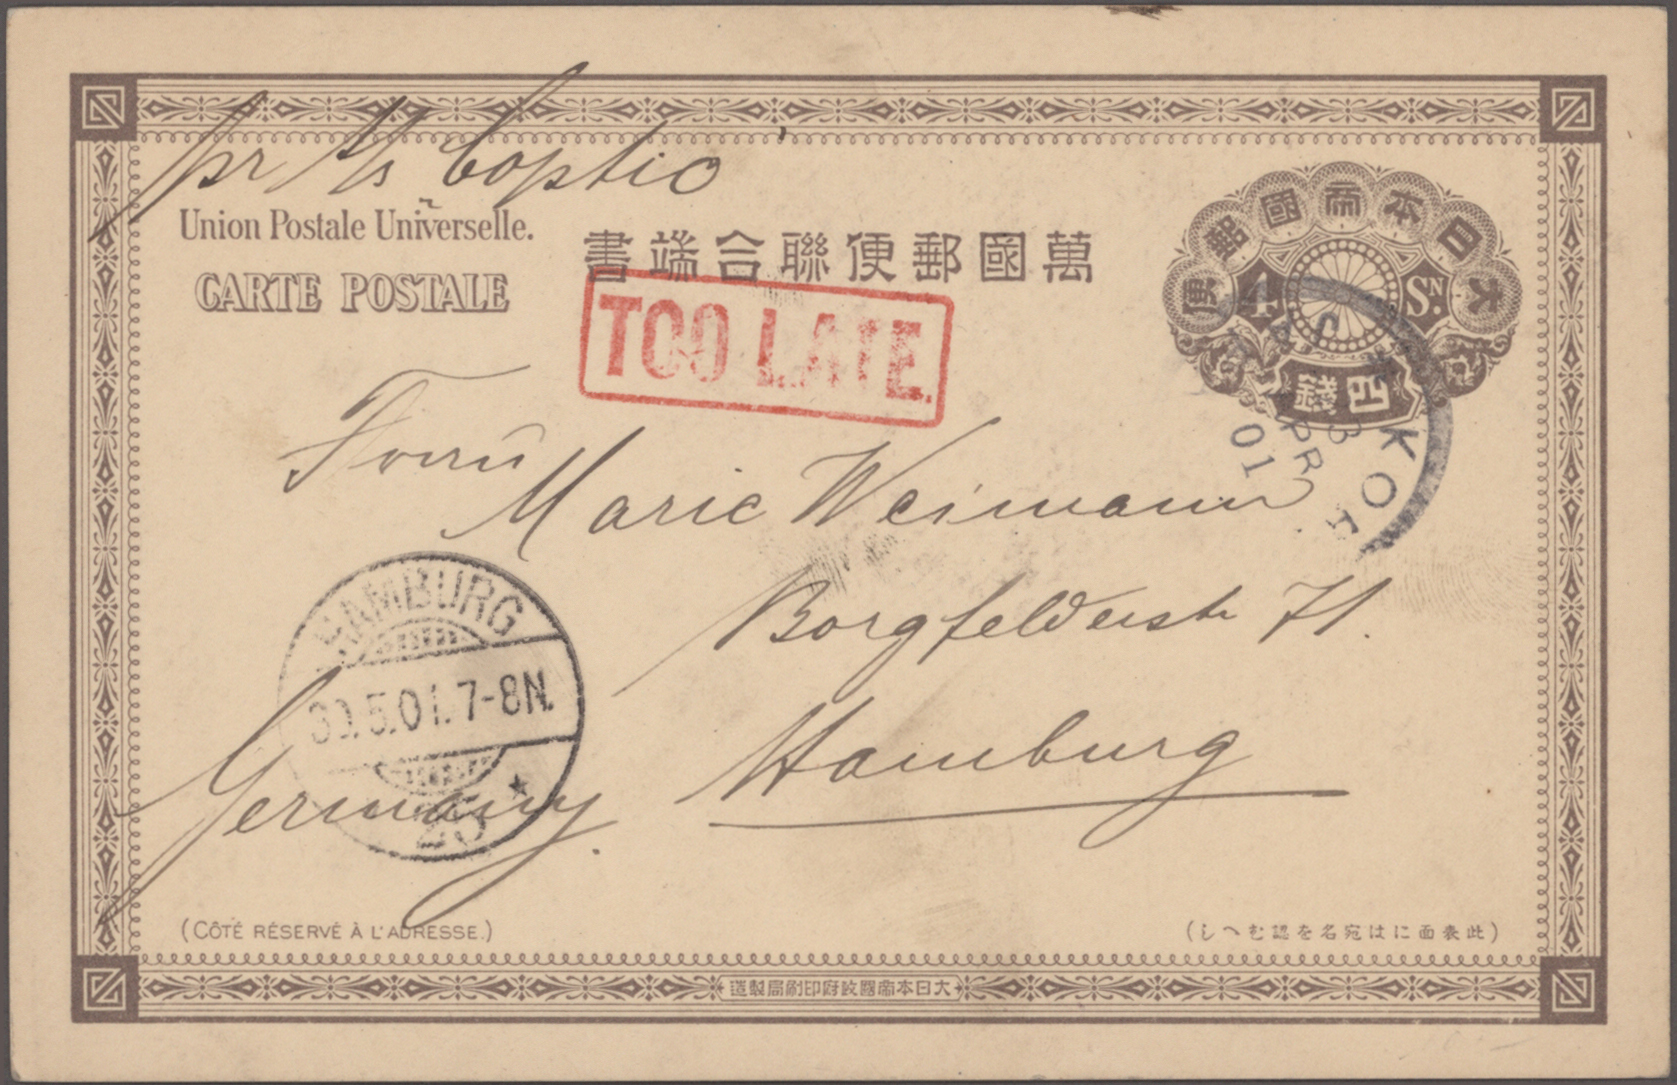 pr S/S Coptic
Union Postale Universelle.
CARTE POSTALE
書端合聯便郵國萬
大日本帝國郵便
4 Sɴ.
四錢
TOO LATE.
3 APR 01
Marie Weimann
Borgfelderstr 71.
Hamburg
Germany.
HAMBURG
30.5.01.7-8N.
25 *
(CÔTÉ RÉSERVÉ À L'ADRESSE.)
(しへむ認を名宛はに面表此)
造製局刷印府政國帝本日大